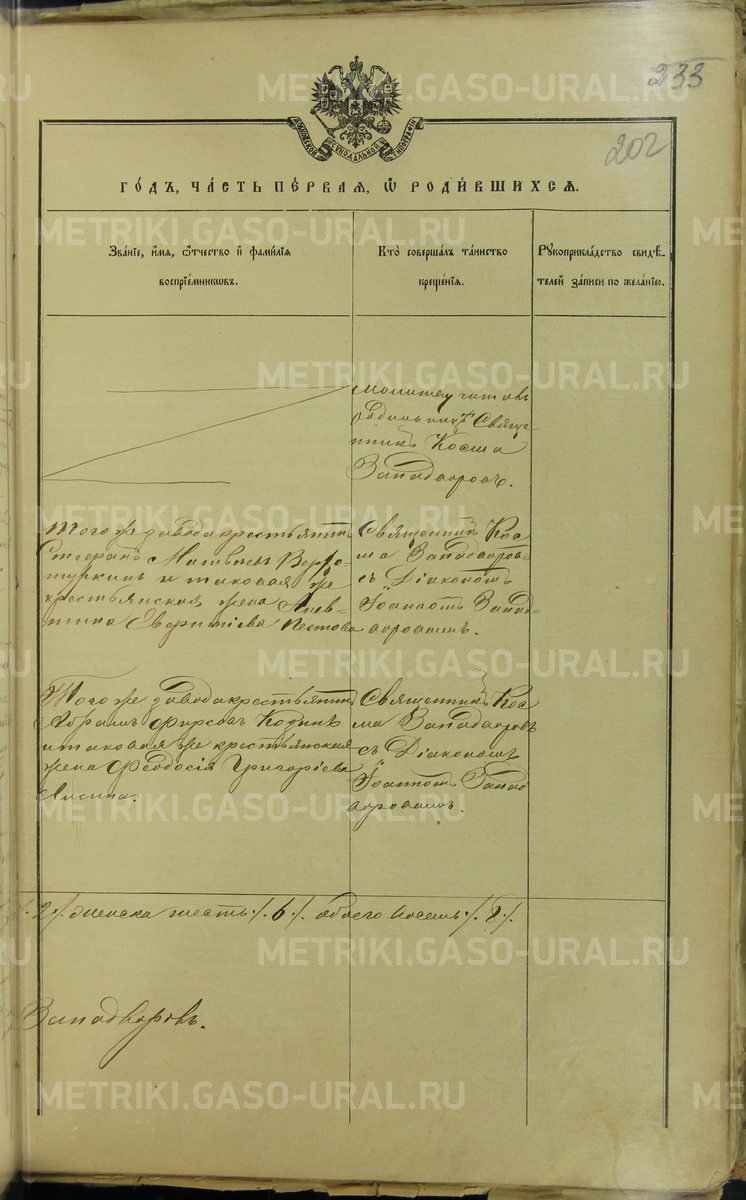 233
202
МОСКОВСКОЙ СѴНОДАЛЬНОЙ ТИПОГРАФІИ
ГОДЪ, ЧАСТЬ ПЕРВАЯ, Ѿ РОДИВШИХСЯ.
Званіе, имя, отчество и фамилія
воспріемниковъ.
Кто совершалъ таинство
крещенія.
Рукоприкладство свидѣ-
телей записи по желанію.
Молитву читавъ
Свяще-
нникъ Косма
Западворовъ.
Того же завода крестьянинъ
Матвѣевъ Верхо-
туркинъ и таковая же
крестьянская жена Алев-
тина Пестова
Священникъ Кос-
ма Западворовъ
съ Діакономъ
Іоанномъ Запад-
воровымъ.
Того же завода крестьянинъ
Абрамъ Фирсовъ Кодинъ
и таковая же крестьянская
жена Феодосія Григоріева
Лисина.
Священникъ Кос-
ма Западворовъ
съ Діакономъ
Іоанномъ Запад-
воровымъ.
2./. женска шесть ./. 6 ./. обоего восемь ./. 8 ./.
Западворовъ.
METRIKI.GASO-URAL.RU